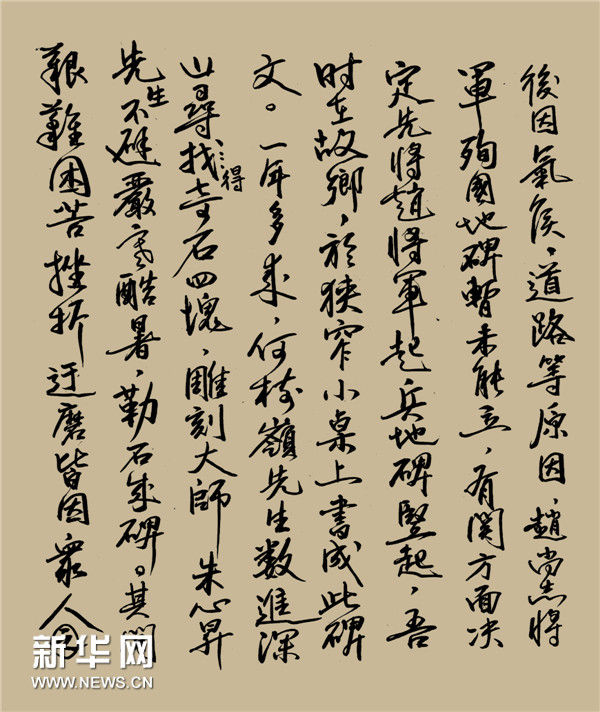 後因氣候、道路等原因，趙尚志將
軍殉國地碑暫未能立，有関方面决
定先將趙將軍起兵地碑竪起，吾
时在故鄉，於狹窄小桌上書成此碑
文。一年多來，何枝嶺先生数進深
山尋找，得奇石四塊，雕刻大師 朱心昇
先生不避嚴寒酷暑，勒石成碑。其間
艱難困苦挫折 磨皆因衆人
新华网
WWW.NEWS.CN